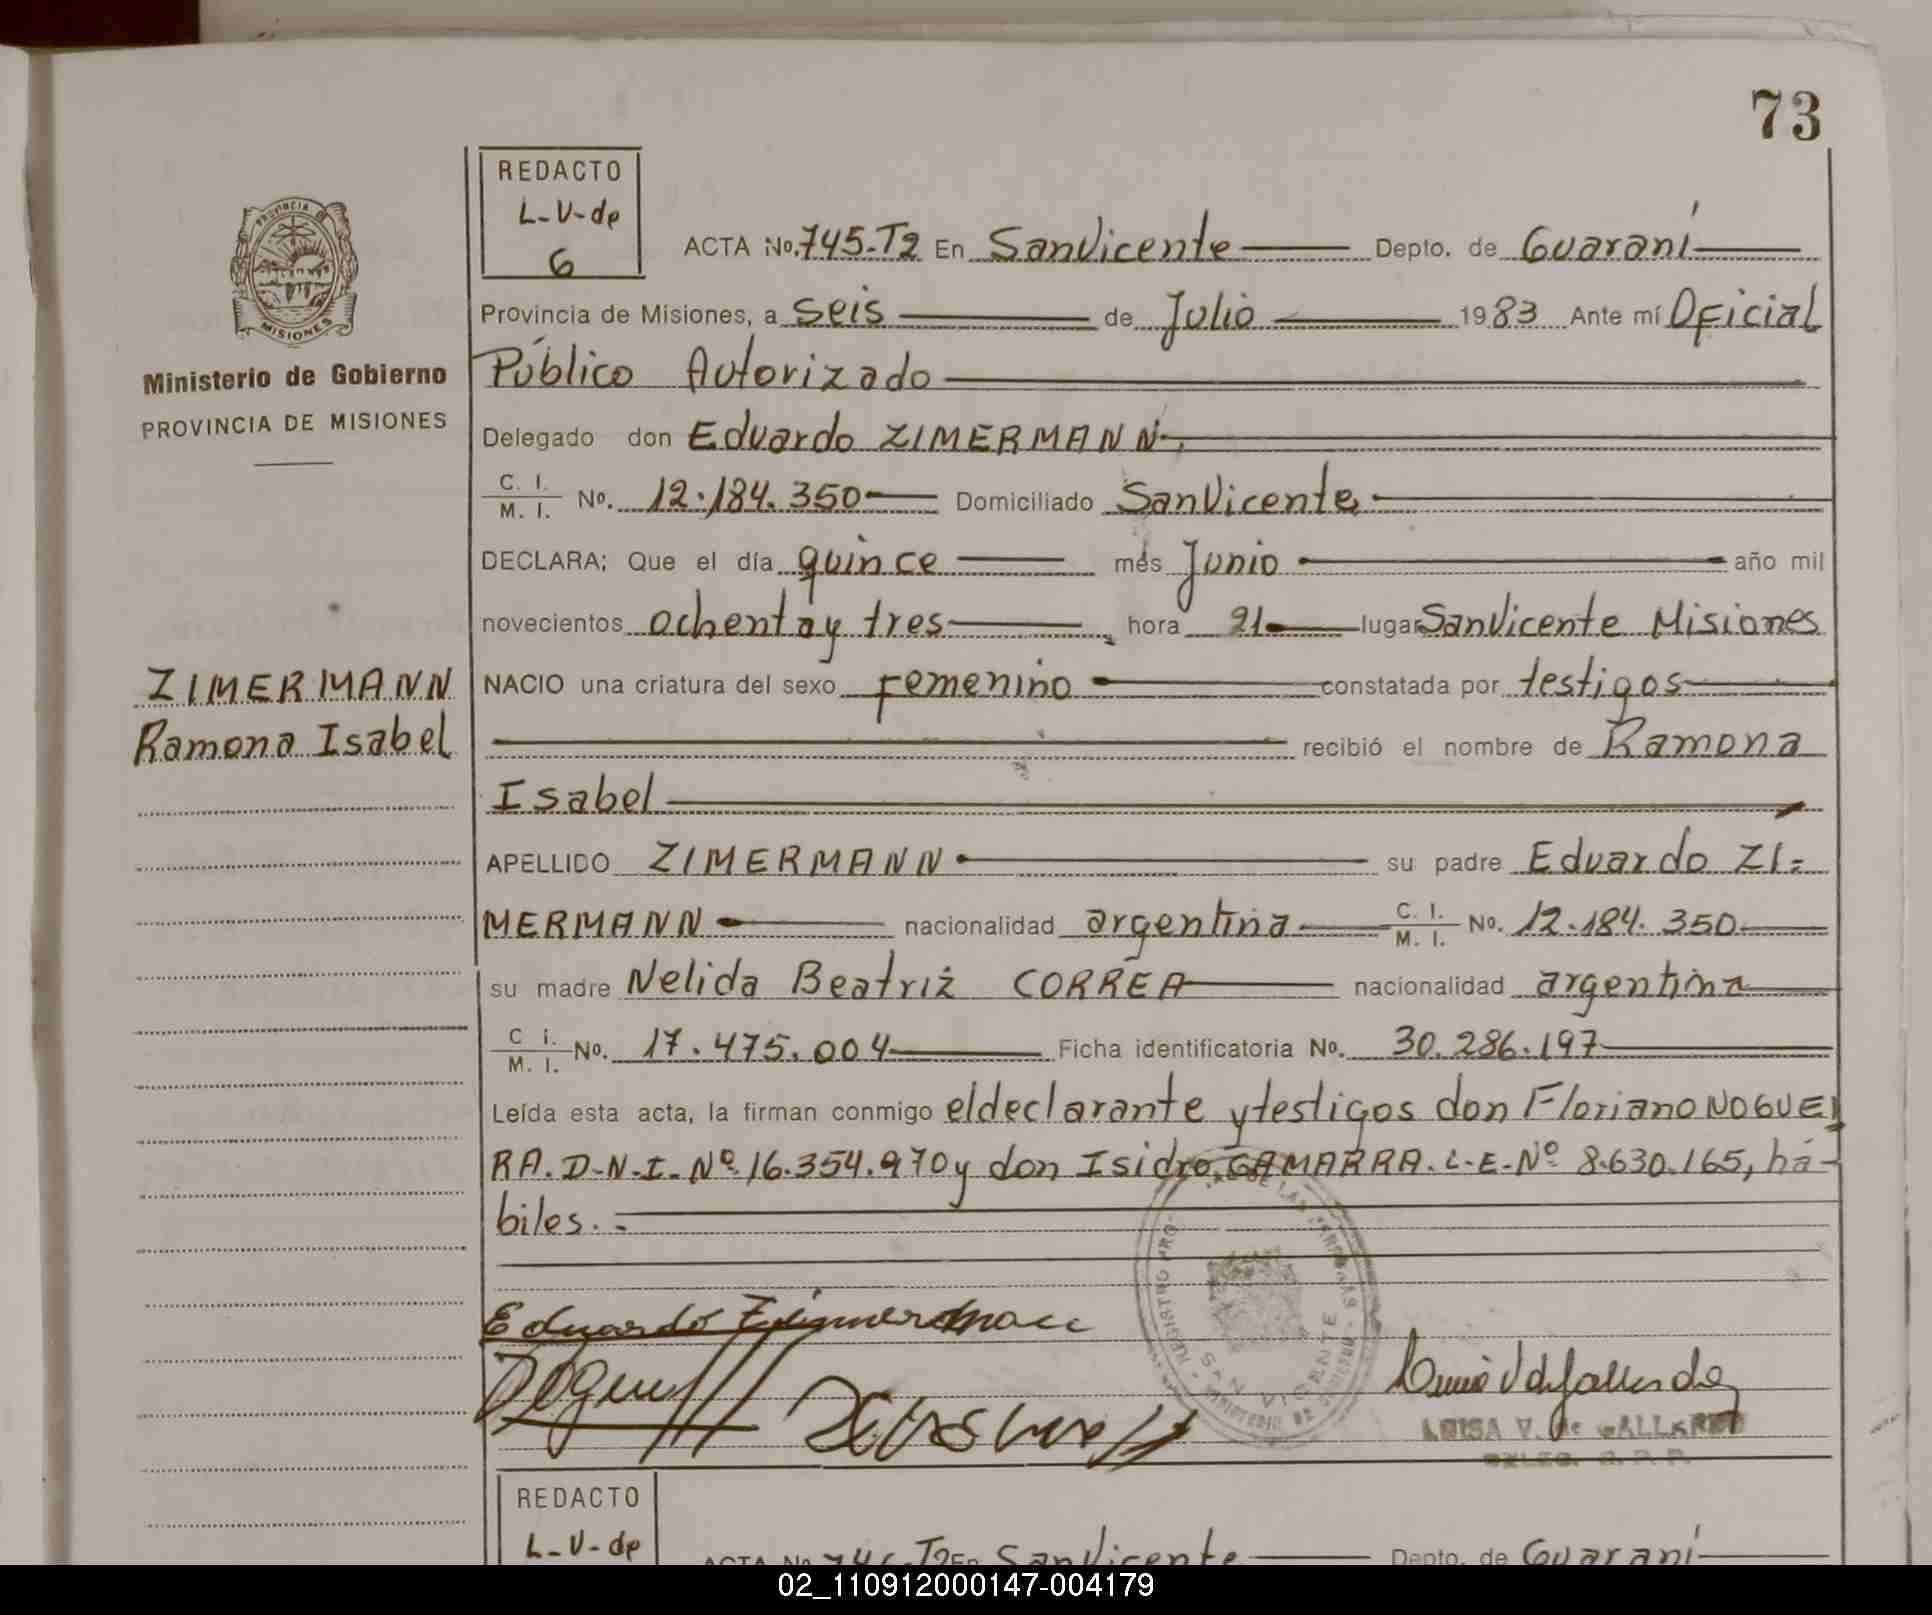 73
REDACTO
L-V-de
G
ACTA No. 745-T2 En SanVicente Depto. de Guaraní
Provincia de Misiones, a seis de Julio 1983 Ante mí Oficial
Público Autorizado
Delegado don Eduardo ZIMERMANN,
C. I.
M. I. No. 12.184.350 Domiciliado SanVicente,
DECLARA: Que el día quince més Junio año mil
novecientos ochenta y tres, hora 21 lugar SanVicente Misiones
NACIO una criatura del sexo femenino constatada por testigos
recibió el nombre de Ramona
Isabel
APELLIDO ZIMERMANN su padre Eduardo ZI=
MERMANN nacionalidad argentina C. I. M. I. No. 12.184.350
su madre Nelida Beatriz CORREA nacionalidad argentina
C I.
M. I. No. 17.475.004 Ficha identificatoria No. 30.286.197
Leída esta acta, la firman conmigo el declarante y testigos don Floriano NOGUEI
RA. D-N-I-Nº 16.354.970 y don Isidro GAMARRA. L-E-Nº 8.630.165, há-
biles.-
PROVINCIA DE
MISIONES
Ministerio de Gobierno
PROVINCIA DE MISIONES
ZIMERMANN
Ramona Isabel
Eduardo
SAN VICENTE
LUISA V. de GALLARDO
REDACTO
L-V-de
ACTA No 746-T2 En SanVicente Depto. de Guaraní
02_110912000147-004179